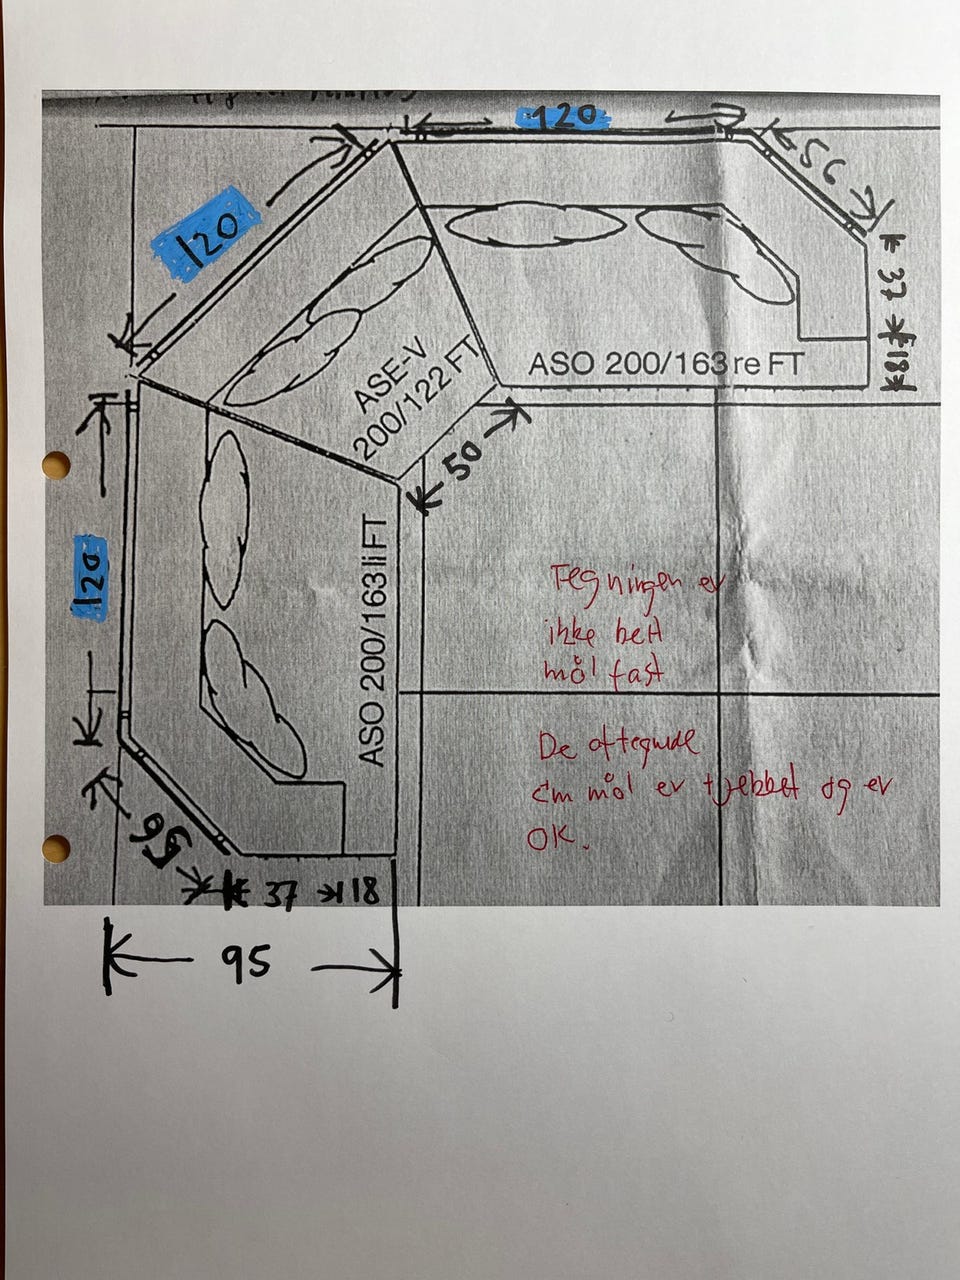 120
56
120
37
18
ASO 200/163 re FT
ASE-V
200/122 FT
50
120
ASO 200/163 li FT
Tegningen er
ikke helt
mål fast
De aftegnede
cm mål er tjekket og er
OK.
56
37
18
95